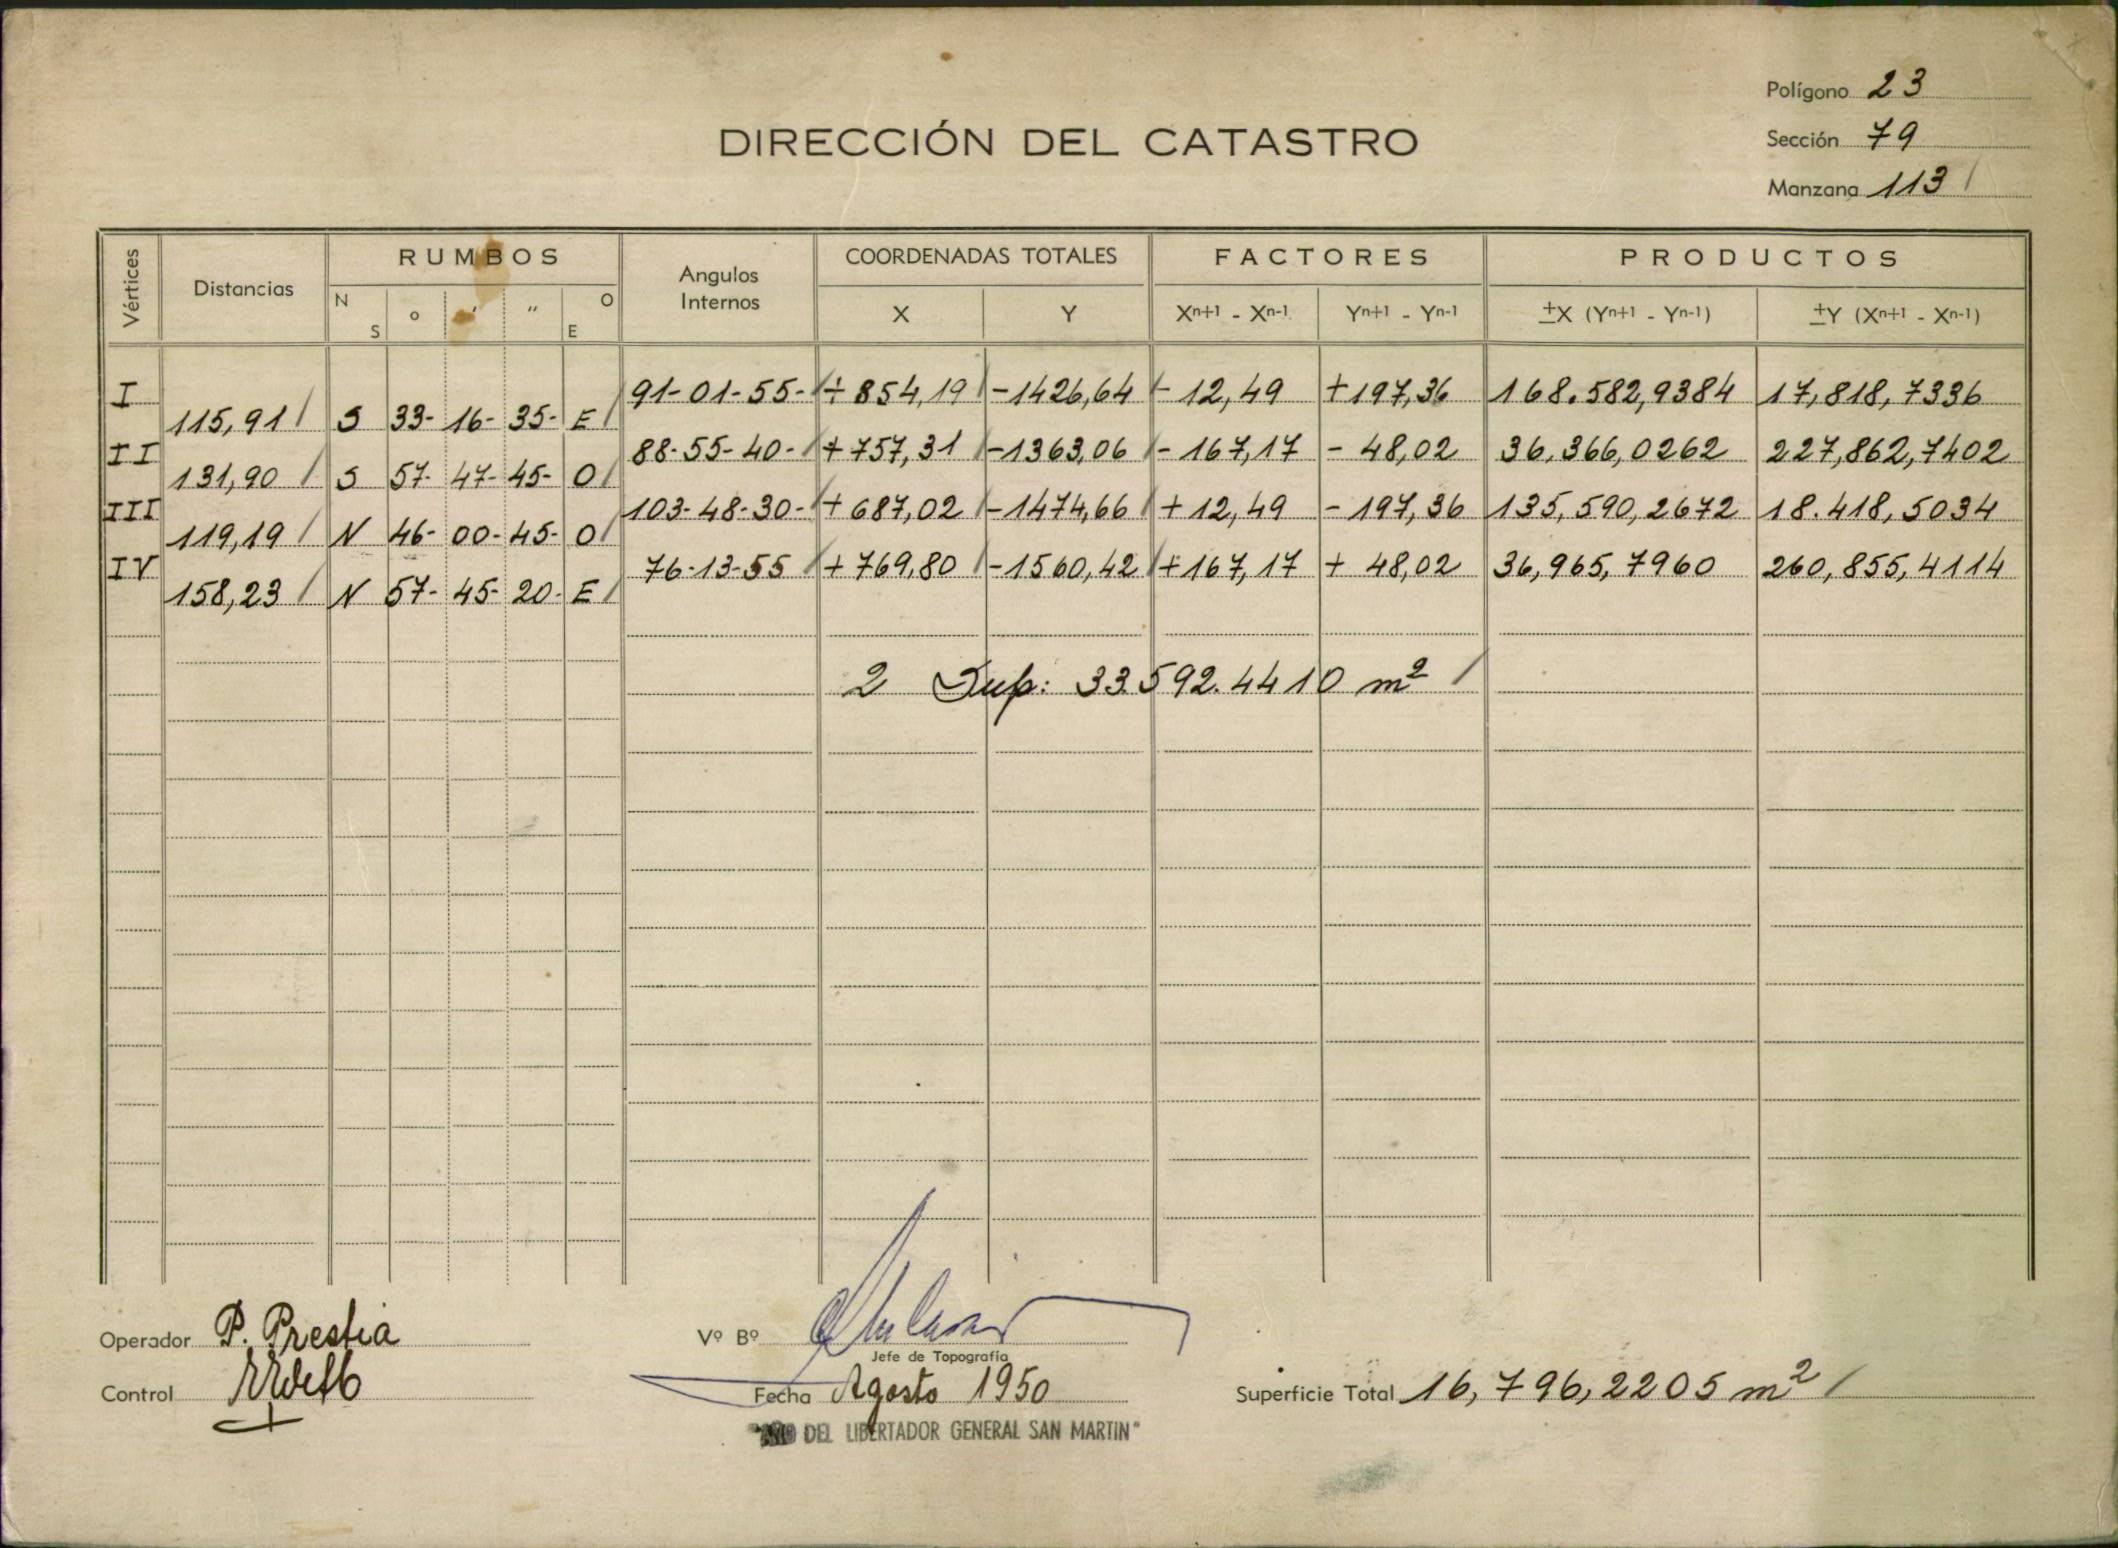 Polígono 23
DIRECCIÓN DEL CATASTRO
Sección 79
Manzana 113 /
Vértices Distancias RUMBOS Angulos Internos COORDENADAS TOTALES FACTORES PRODUCTOS
N S o ′ ″ O E X Y Xn+1 - Xn-1 Yn+1 - Yn-1 ±X (Yn+1 - Yn-1) ±Y (Xn+1 - Xn-1)
I 91-01-55- / + 854,19 / -1426,64 / - 12,49 +197,36 168.582,9384 17,818,7336
115,91 / S 33- 16- 35- E /
II 88-55-40- / + 757,31 / -1363,06 / - 167,17 - 48,02 36,366,0262 227,862,7402
131,90 / S 57- 47- 45- O /
III 103-48-30- / + 687,02 / -1474,66 / + 12,49 - 197,36 135,590,2672 18.418,5034
119,19 / N 46- 00- 45- O /
IV 76-13-55 / + 769,80 / -1560,42 / + 167,17 + 48,02 36,965,7960 260,855,4114
158,23 / N 57- 45- 20- E /
2 Sup: 33.592.4410 m² /
Operador P. Prestia
Vº Bº
Jefe de Topografía
Control
Fecha Agosto 1950
Superficie Total 16,796,2205 m² /
"AÑO DEL LIBERTADOR GENERAL SAN MARTIN"